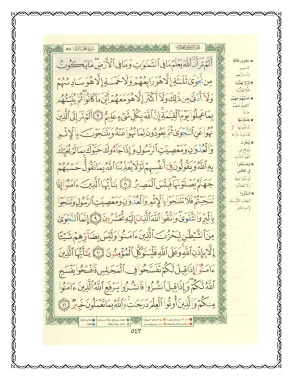 أَلَمْ تَرَ أَنَّ ٱللَّهَ يَعْلَمُ مَا فِى ٱلسَّمَٰوَٰتِ وَمَا فِى ٱلْأَرْضِ ۖ مَا يَكُونُ
مِن نَّجْوَىٰ ثَلَٰثَةٍ إِلَّا هُوَ رَابِعُهُمْ وَلَا خَمْسَةٍ إِلَّا هُوَ سَادِسُهُمْ
وَلَآ أَدْنَىٰ مِن ذَٰلِكَ وَلَآ أَكْثَرَ إِلَّا هُوَ مَعَهُمْ أَيْنَ مَا كَانُوا۟ ۖ ثُمَّ يُنَبِّئُهُم
بِمَا عَمِلُوا۟ يَوْمَ ٱلْقِيَٰمَةِ ۚ إِنَّ ٱللَّهَ بِكُلِّ شَىْءٍ عَلِيمٌ ٧ أَلَمْ تَرَ إِلَى ٱلَّذِينَ
نُهُوا۟ عَنِ ٱلنَّجْوَىٰ ثُمَّ يَعُودُونَ لِمَا نُهُوا۟ عَنْهُ وَيَتَنَٰجَوْنَ بِٱلْإِثْمِ
وَٱلْعُدْوَٰنِ وَمَعْصِيَتِ ٱلرَّسُولِ وَإِذَا جَآءُوكَ حَيَّوْكَ بِمَا لَمْ يُحَيِّكَ
بِهِ ٱللَّهُ وَيَقُولُونَ فِىٓ أَنفُسِهِمْ لَوْلَا يُعَذِّبُنَا ٱللَّهُ بِمَا نَقُولُ ۚ حَسْبُهُمْ
جَهَنَّمُ يَصْلَوْنَهَا ۖ فَبِئْسَ ٱلْمَصِيرُ ٨ يَٰٓأَيُّهَا ٱلَّذِينَ ءَامَنُوٓا۟ إِذَا
تَنَٰجَيْتُمْ فَلَا تَتَنَٰجَوْا۟ بِٱلْإِثْمِ وَٱلْعُدْوَٰنِ وَمَعْصِيَتِ ٱلرَّسُولِ وَتَنَٰجَوْا۟
بِٱلْبِرِّ وَٱلتَّقْوَىٰ ۖ وَٱتَّقُوا۟ ٱللَّهَ ٱلَّذِىٓ إِلَيْهِ تُحْشَرُونَ ٩ إِنَّمَا ٱلنَّجْوَىٰ
مِنَ ٱلشَّيْطَٰنِ لِيَحْزُنَ ٱلَّذِينَ ءَامَنُوا۟ وَلَيْسَ بِضَآرِّهِمْ شَيْـًٔا
إِلَّا بِإِذْنِ ٱللَّهِ ۚ وَعَلَى ٱللَّهِ فَلْيَتَوَكَّلِ ٱلْمُؤْمِنُونَ ١٠ يَٰٓأَيُّهَا ٱلَّذِينَ
ءَامَنُوٓا۟ إِذَا قِيلَ لَكُمْ تَفَسَّحُوا۟ فِى ٱلْمَجَٰلِسِ فَٱفْسَحُوا۟ يَفْسَحِ
ٱللَّهُ لَكُمْ ۖ وَإِذَا قِيلَ ٱنشُزُوا۟ فَٱنشُزُوا۟ يَرْفَعِ ٱللَّهُ ٱلَّذِينَ ءَامَنُوا۟
مِنكُمْ وَٱلَّذِينَ أُوتُوا۟ ٱلْعِلْمَ دَرَجَٰتٍ ۚ وَٱللَّهُ بِمَا تَعْمَلُونَ خَبِيرٌ ١١
٥٤٣